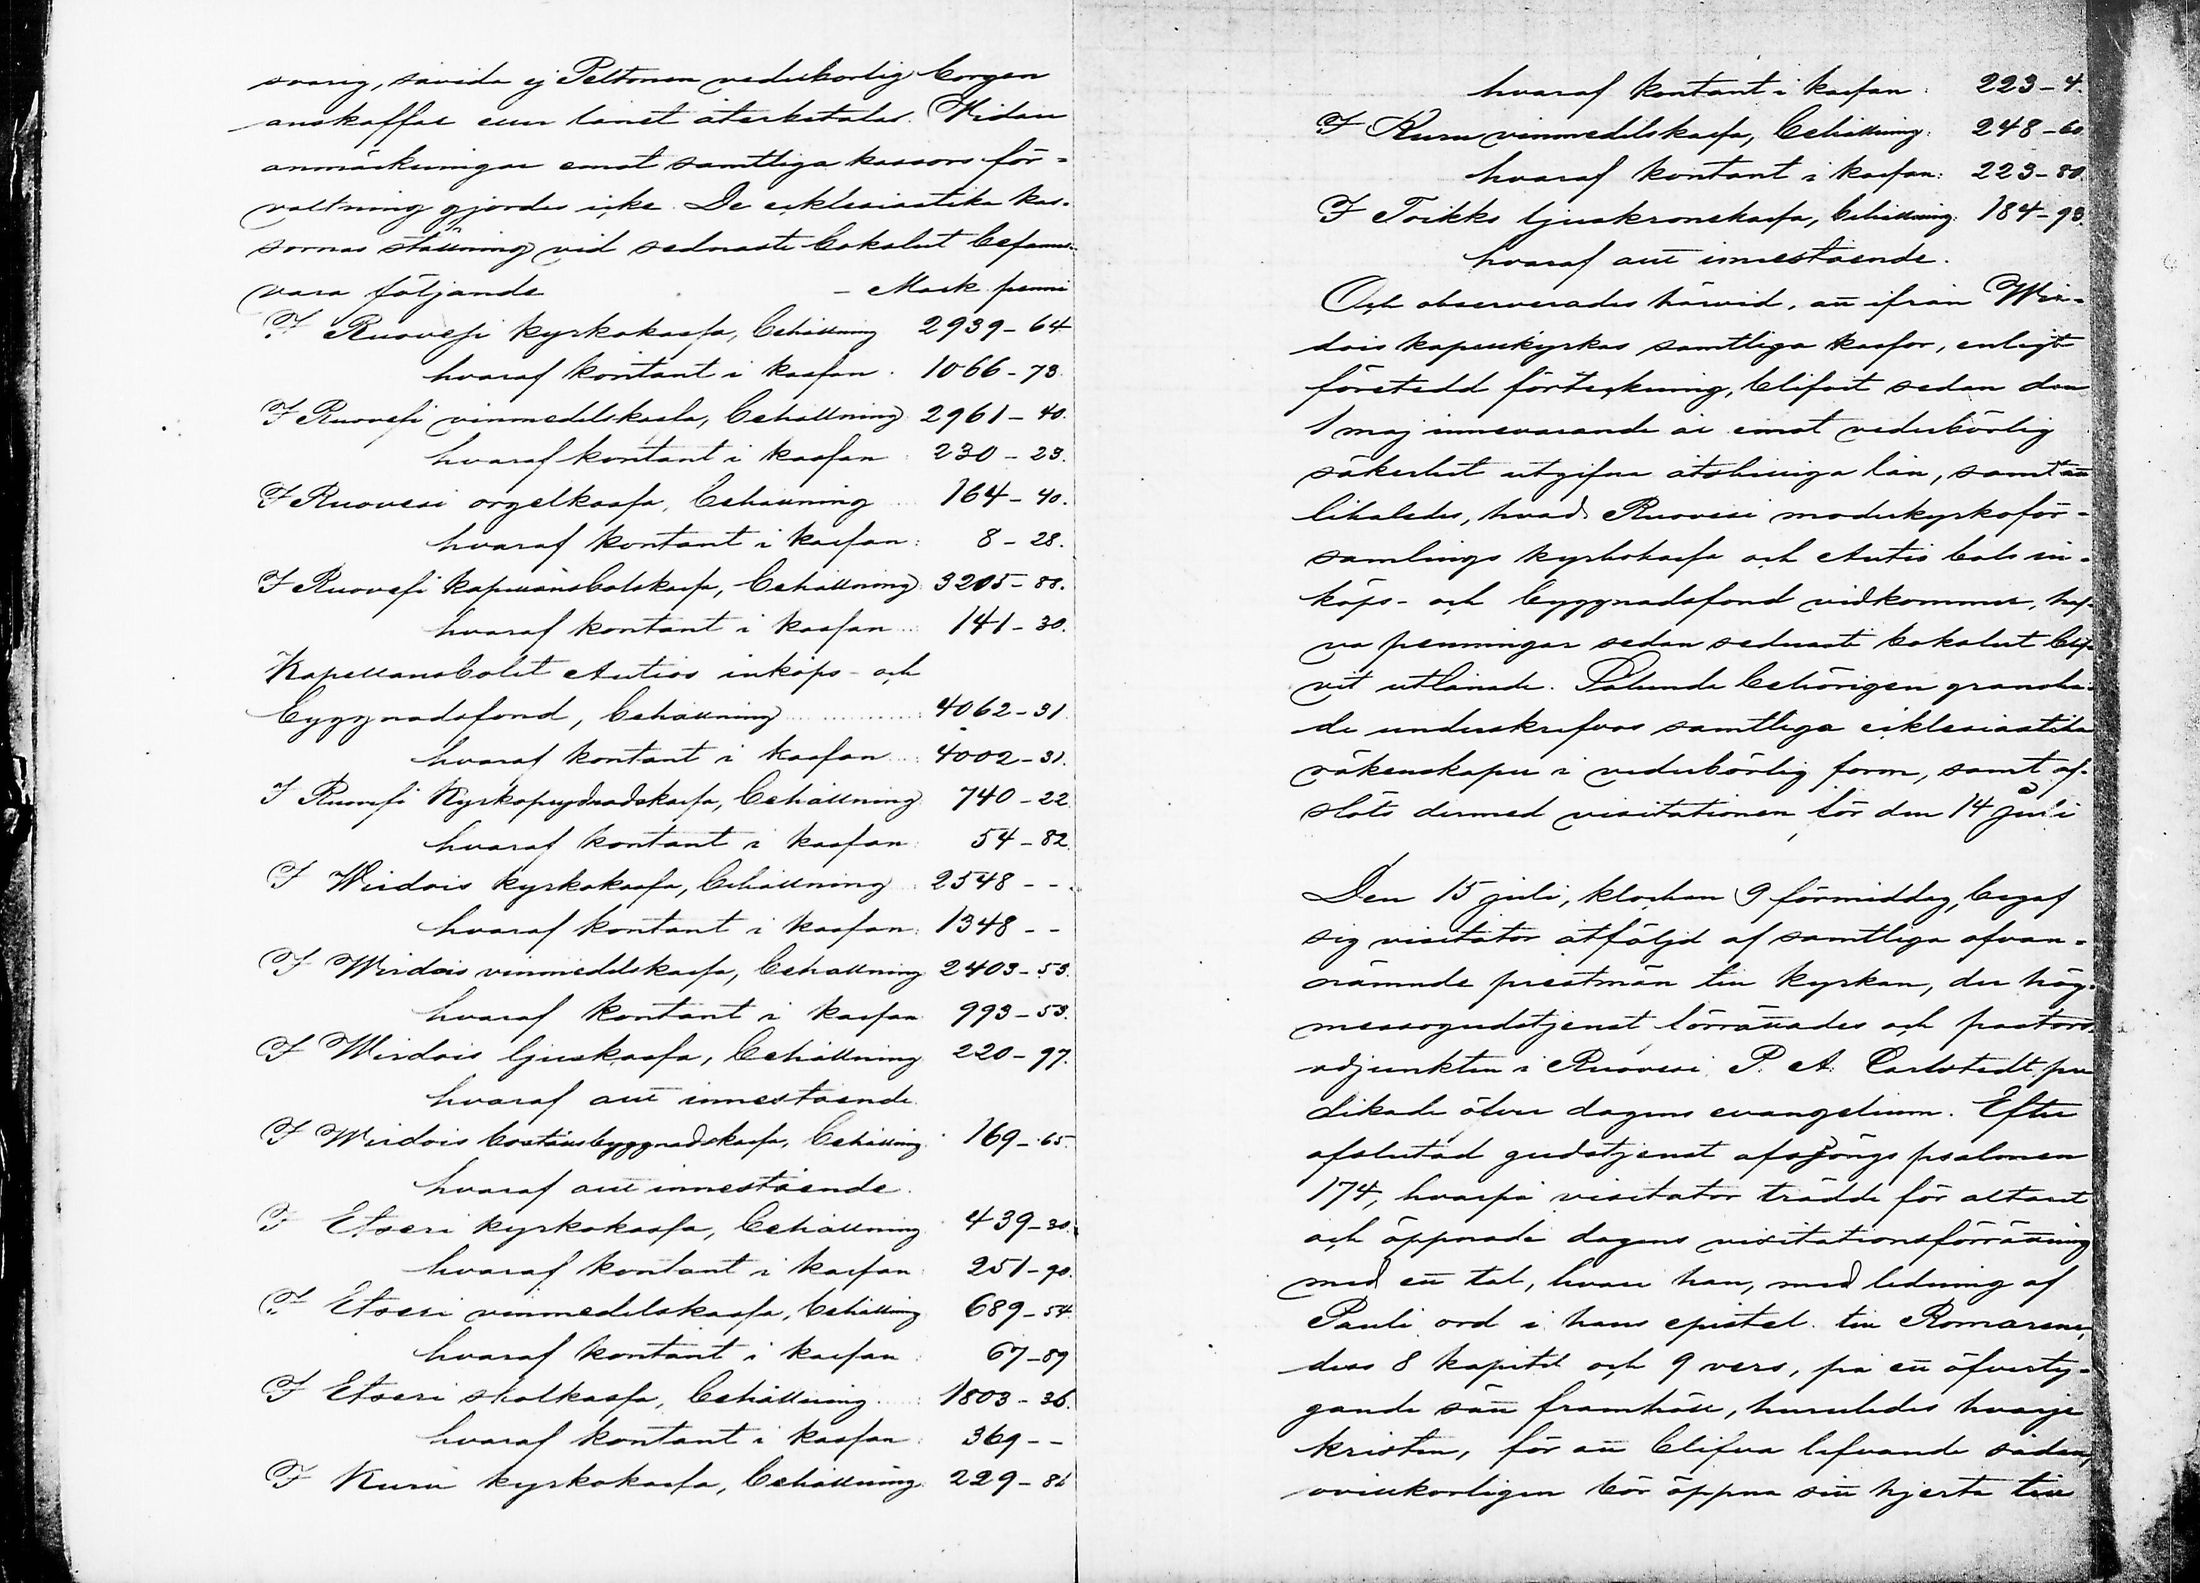 svarig, såvida ej Peltonen vederbörlig borgen
anskaffar eller lånet återbetalas. Widare
anmärkningar emot samtliga kassors för-
valtning gjordes icke. De ecklesiastika kas-
sornas ställning vid sednaste bokslut befanns
vara följande – Mark penni
I Ruovesi kyrkokassa, behållning 2939 – 64
hvaraf kontant i kassan. 1066 – 73.
I Ruovesi vinmedelskassa, behållning 2961 – 40.
hvaraf kontant i kassan: 230 – 23.
I Ruovesi orgelkassa, behållning ... 164 – 40.
hvaraf kontant i kassan: 8 – 28.
I Ruovesi kapellansbolskassa, behållning 3205 – 88.
hvaraf kontant i kassan ... 141 – 30.
Kapellansbolet Autios inköps- och
byggnadsfond, behållning ............ 4062 – 31.
hvaraf kontant i kassan ... 4002 – 31.
I Ruovesi Kyrkoprydnadskassa, behållning 740 – 22
hvaraf kontant i kassan: 54 – 82.
I Wirdois kyrkokassa, behållning 2548 – – .
hvaraf kontant i kassan: 1348 – –
I Wirdois vinmedelskassa, behållning 2403 – 53.
hvaraf kontant i kassan 993 – 53.
I Wirdois ljuskassa, behållning 220 – 97.
hvaraf allt innestående.
I Wirdois boställsbyggnadskassa, behållning 169 – 65.
hvaraf allt innestående.
I Etseri kyrkokassa, behållning 439 – 30.
hvaraf kontant i kassan 251 – 90.
I Etseri vinmedelskassa, behållning 689 – 54.
hvaraf kontant i kassan: 67 – 89
I Etseri skolkassa, behållning ... 1803 – 36.
hvaraf kontant i kassan: 369 – –
I Kuru kyrkokassa, behållning: 229 – 86
hvaraf kontant i kassan: 223 – 4.
I Kuru vinmedelskassa, behållning: 248 – 60
hvaraf kontant i kassan: 223 – 80.
I Toikko ljuskronekassa, behållning: 184 – 93.
hvaraf allt innestående.
Och observerades härvid, att ifrån Wir-
dois kapellkyrkas samtliga kassor, enligt
företedd förteckning, blifvit sedan den
1 maj innevarande år emot vederbörlig
säkerhet utgifna åtskilliga lån, samt att
likaledes, hvad Ruovesi moderkyrkoför-
samlings kyrkokassa och Autio bols in-
köps- och byggnadsfond vidkommer, haf-
va penningar sedan sednaste bokslut blif-
vit utlånade. Sålunda behörigen granska-
de underskrefvos samtliga ecklesiastika
räkenskaper i vederbörlig form, samt af-
slöts dermed visitationen för den 14 Juli
Den 15 juli, klockan 9 förmiddag, begaf
sig visitator åtföljd af samtliga ofvan-
nämnde prestmän till kyrkan, der hög-
messogudstjenst förrättades och pastors-
adjunkten i Ruovesi P. A. Carlstedt pre-
dikade öfver dagens evangelium. Efter
afslutad gudstjenst afsjöngs psalmen
174, hvarpå visitator trädde för altaret
och öppnade dagens visitationsförrättning
med ett tal, hvari han, med ledning af
Pauli ord i hans epistel till Romarene,
dess 8 kapitel och 9 vers, på ett öfverty-
gande sätt framhöll, huruledes hvarje
kristen, för att blifva lefvande sådan,
ovillkorligen bör öppna sitt hjerta till